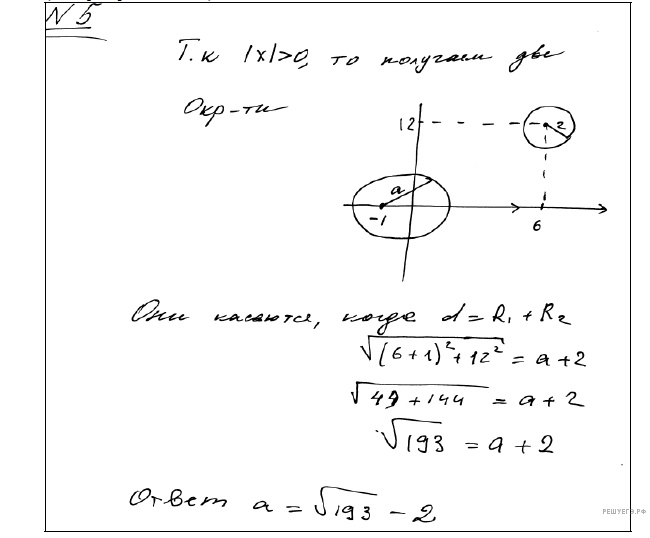 N 5
Т.к |x|>0, то получаем две
Окр-ти
12
2
a
-1
6
Они касаются, когда d = R₁ + R₂
√((6+1)²+12²) = a+2
√(49+144) = a+2
√193 = a+2
Ответ a = √193 - 2
РЕШУЕГЭ.РФ